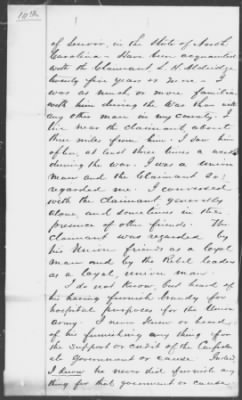 10th
of Lenoir, in the State of North
Carolina - Have been acquainted
with the Claimant, L. H. Aldridge
twenty five years or more - I
was as much, or more familiar
with him during the War than with
any other man in my county. I
live near the Claimant, about
three miles from him. I saw him
often, at least three times a week
during the war. I was a union
man and the Claimant so
regarded me. I conversed
with the Claimant, generally
alone, and sometimes in the
presence of other friends. The
Claimant was regarded by
his Union friends as a loyal
man and by the Rebel leaders
as a loyal, union man.
I do not know, but heard of
his having furnish brandy for
hospital purposes for the Union
Army. I never knew or heard
of his furnishing any thing
the support or credit of the Confeder-
ate Government or cause. Indeed
I know he never did furnish any
thing for that government or cause